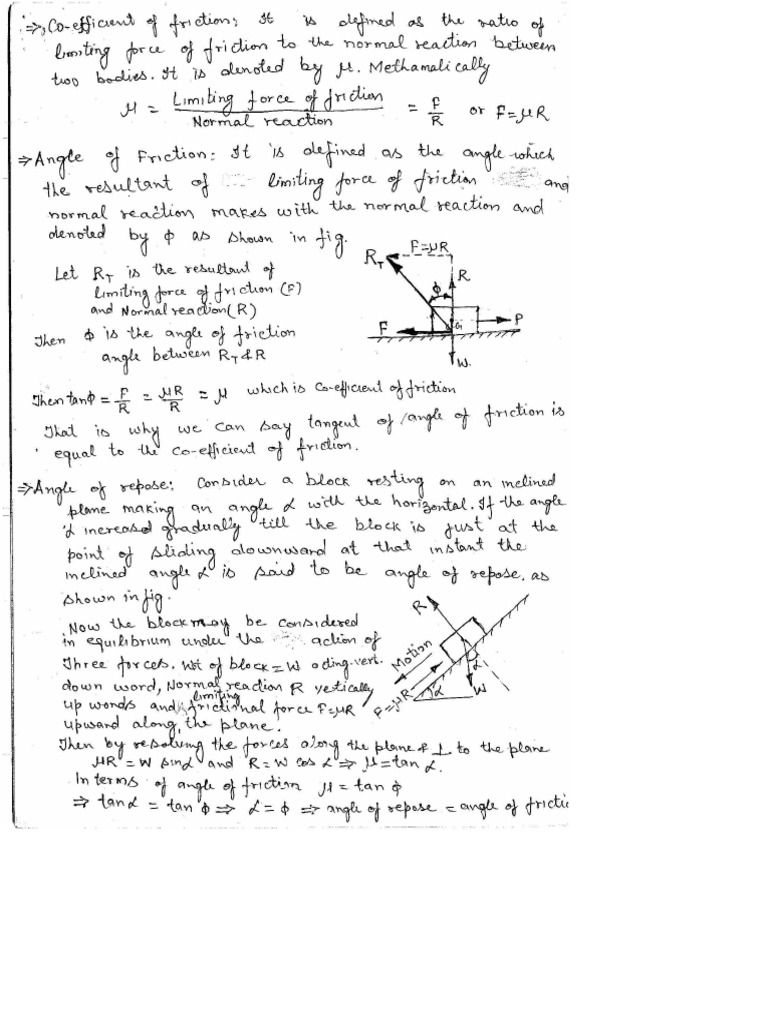 ⇒, Co-efficient of friction: It is defined as the ratio of
limiting force of friction to the normal reaction between
two bodies. It is denoted by μ. Methamalically
μ = Limiting force of friction / Normal reaction = F/R or F=μR
⇒ Angle of Friction: It is defined as the angle which
the resultant of limiting force of friction and
normal reaction makes with the normal reaction and
denoted by φ as shown in fig.
Let R_T is the resultant of
limiting force of friction (F)
and Normal reaction (R)
Then φ is the angle of friction
angle between R_T & R
R_T
F=μR
R
φ
G
F
P
W.
Then tanφ = F/R = μR/R = μ which is Co-efficient of friction
That is why we can say tangent of angle of friction is
equal to the co-efficient of friction.
⇒ Angle of repose: Consider a block resting on an inclined
plane making an angle α with the horizontal. If the angle
α increased gradually till the block is just at the
point of sliding downward at that instant the
inclined angle α is said to be angle of repose, as
shown in fig.
Now the block may be considered
in equilibrium under the action of
Three forces. Wt of block = W acting vert.
down word, Normal reaction R vertically
up words and limiting frictional force F=μR
upward along, the plane.
R
Motion
F=μR
α
α
W
Then by resolving the forces along the plane & ⊥ to the plane
μR = W sinα and R = W cos α ⇒ μ = tan α.
In terms of angle of friction μ = tan φ
⇒ tanα = tan φ ⇒ α = φ ⇒ angle of repose = angle of frictio